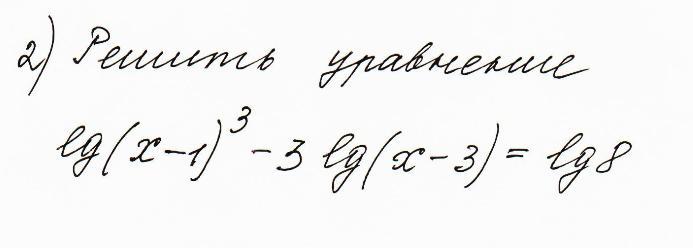 2) Решить уравнение
lg(x-1)³ - 3 lg(x-3) = lg 8